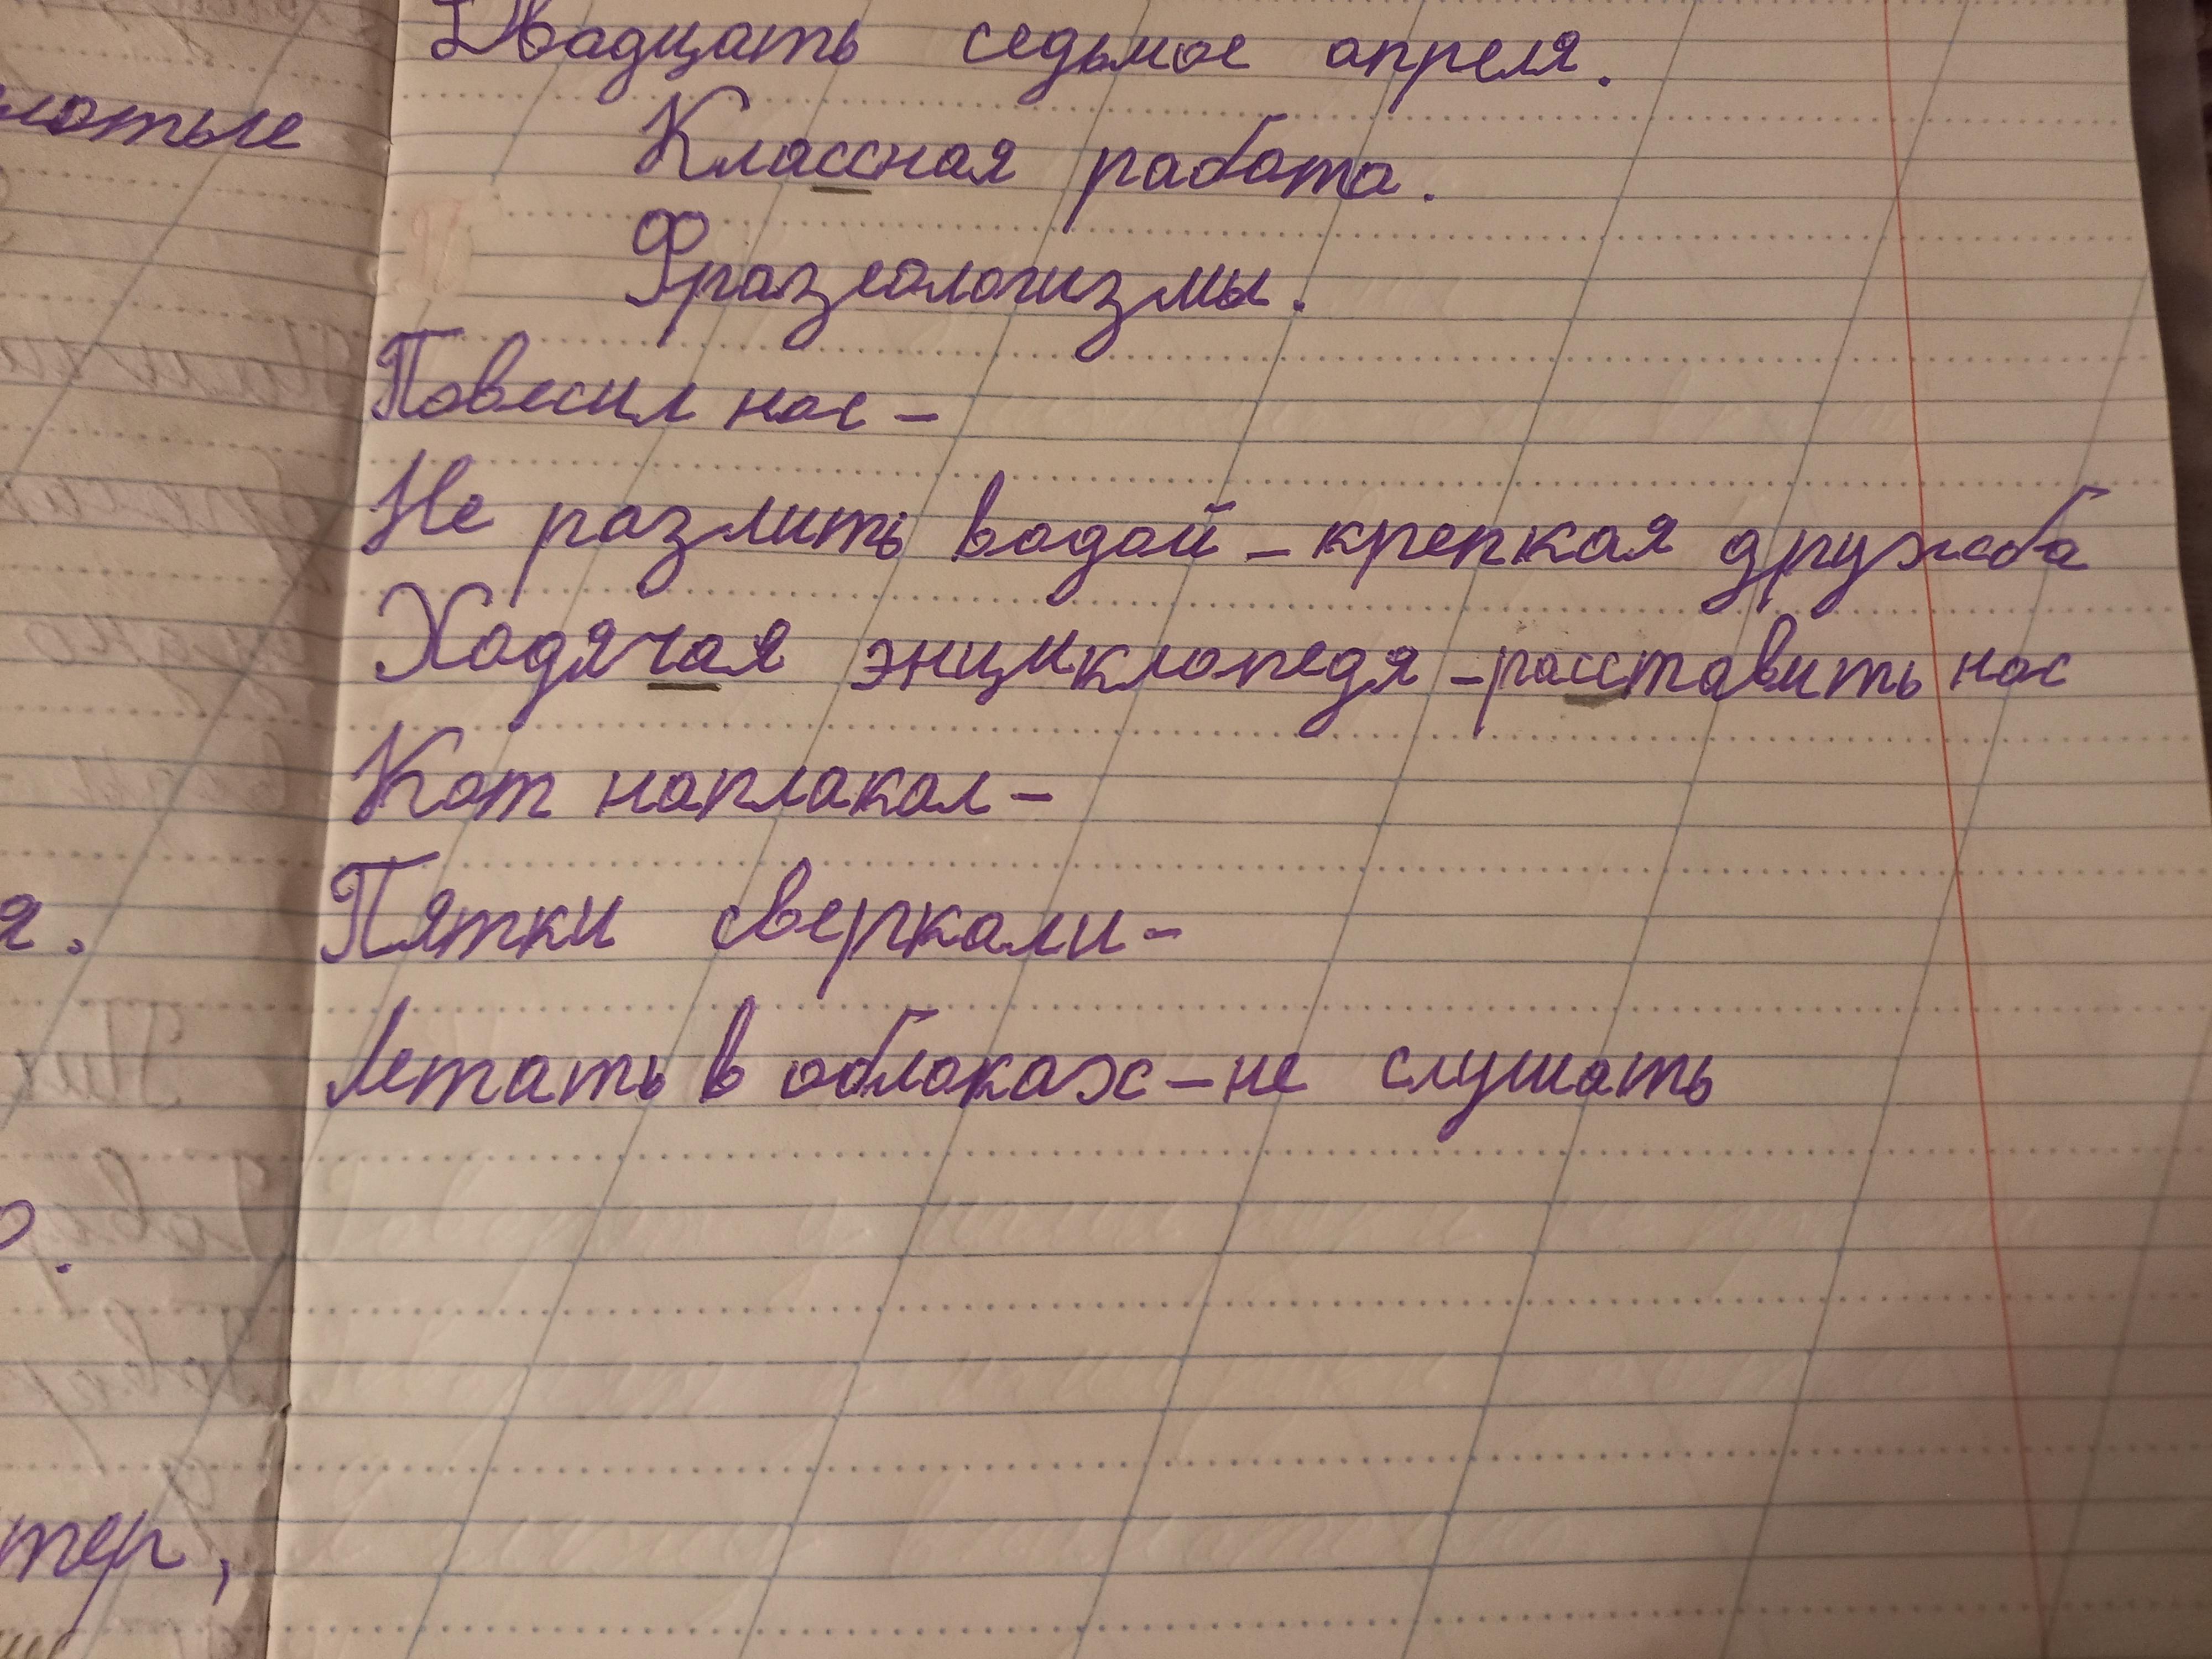 Двадцать седьмое апреля.
Классная работа.
Фразеологизмы.
Повесил нос –
Не разлить водой – крепкая дружба
Ходячая энциклопедя – расставить нос
Кот наплакал –
Пятки сверкали –
Летать в облаках – не слушать